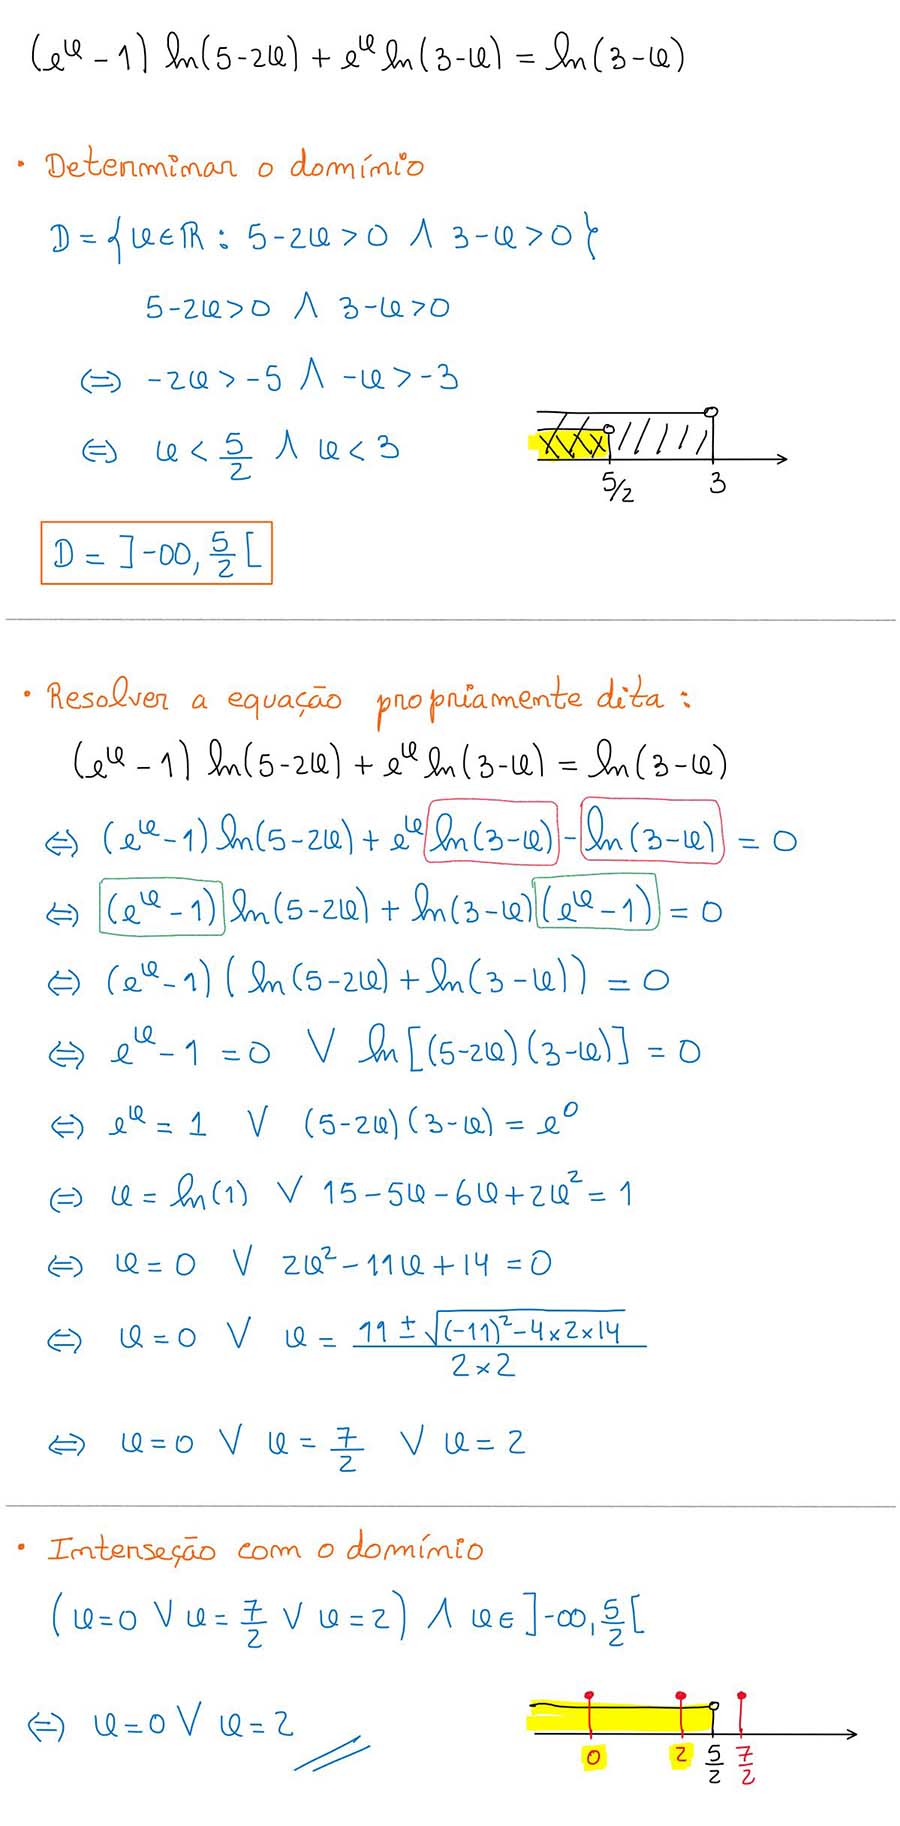 (eˣ - 1) ln(5-2x) + eˣ ln(3-x) = ln(3-x)
• Determinar o domínio
D = {x∈ℝ : 5-2x>0 ∧ 3-x>0}
5-2x>0 ∧ 3-x>0
⇔ -2x>-5 ∧ -x>-3
⇔ x < 5/2 ∧ x<3
5/2 3
D = ]-∞, 5/2[
• Resolver a equação propriamente dita :
(eˣ - 1) ln(5-2x) + eˣ ln(3-x) = ln(3-x)
⇔ (eˣ-1) ln(5-2x) + eˣ ln(3-x) - ln(3-x) = 0
⇔ (eˣ-1) ln(5-2x) + ln(3-x)(eˣ-1) = 0
⇔ (eˣ-1) ( ln(5-2x) + ln(3-x)) = 0
⇔ eˣ-1 = 0 ∨ ln[(5-2x)(3-x)] = 0
⇔ eˣ = 1 ∨ (5-2x)(3-x) = e⁰
⇔ x = ln(1) ∨ 15-5x-6x+2x² = 1
⇔ x = 0 ∨ 2x²-11x+14 = 0
⇔ x = 0 ∨ x = (11 ± √((-11)²-4×2×14))/(2×2)
⇔ x=0 ∨ x = 7/2 ∨ x = 2
• Interseção com o domínio
(x=0 ∨ x = 7/2 ∨ x = 2) ∧ x∈ ]-∞, 5/2[
⇔ x=0 ∨ x=2
0 2 5/2 7/2